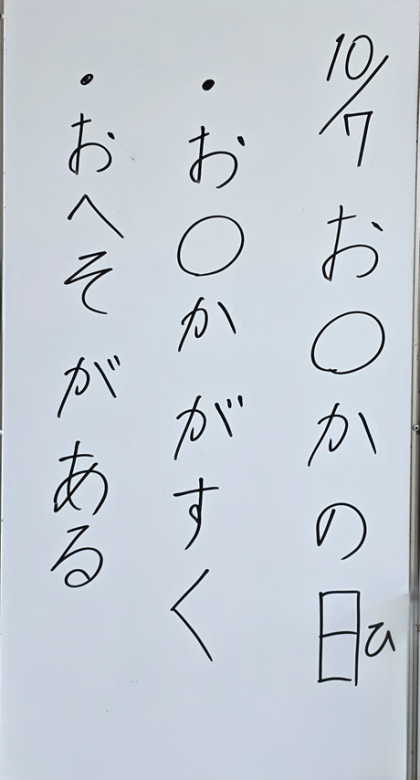 10/7 お〇かの日ひ
・お〇かがすく
・おへそがある